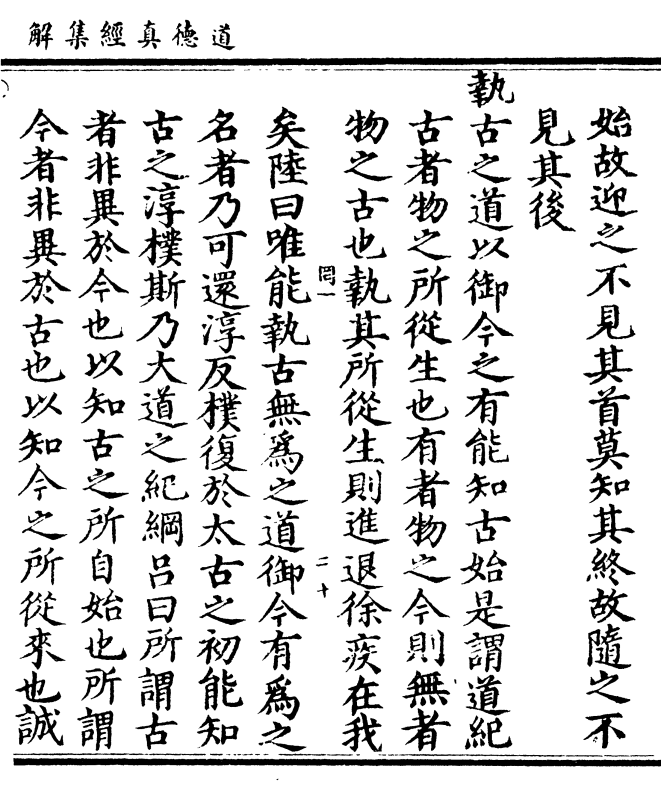 道德真經集解
始故迎之不見其首莫知其終故隨之不
見其後
執古之道以御今之有能知古始是謂道紀
古者物之所從生也有者物之今則無者
物之古也執其所從生則進退徐疾在我
罔一
二十
矣陸曰唯能執古無為之道御今有為之
名者乃可還淳反樸復於太古之初能知
古之淳樸斯乃大道之紀綱呂曰所謂古
者非異於今也以知古之所自始也所謂
今者非異於古也以知今之所從來也誠